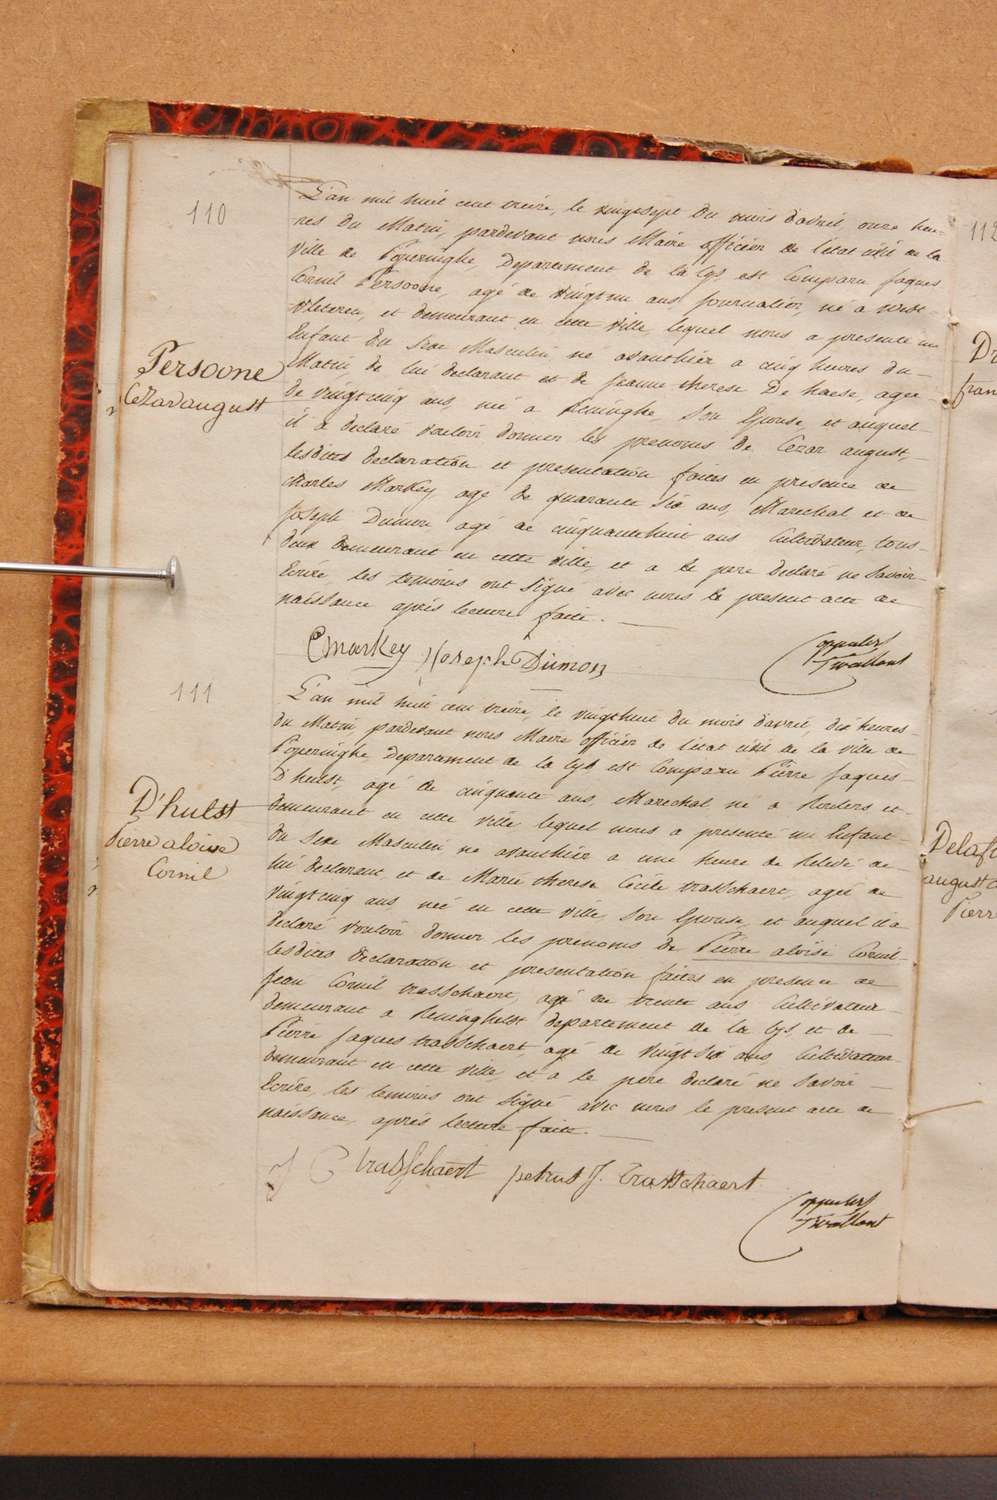 110
L'an mil huit cent treize, le vingtsept du mois d'avril onze heu-
-res du Matin, pardevant nous Maire officier de l'etat civil de la
ville de Poperinghe Departement de la Lys est Comparu Jaques
Cornil Persoone, agé de vingtun ans, Journalier, né a West-
vleteren, et demeurant en cette ville, lequel nous a presenté un
Enfant du sexe Masculin, né avanthier a cinq heures du
Matin, de lui declarant et de Jeanne therese De haese, agée
de vingtcinq ans, née a Reninghe, son Epouse, et auquel
il a declaré vouloir donner les prenoms de Cezar august,
lesdites declaration et presentation faites en presence de
charles Markey, agé de quarante six ans, Marechal et de
Joseph Dumon agé de cinquantehuit ans Cultivateur, tous
deux demeurant en cette ville, et a le pere declaré ne savoir
Ecrire, les temoins ont signé avec nous le present acte de
naissance après lecture faite.
Persoone
Cezar august
C Markey Joseph Dumon
111
L'an mil huit cent treize, le vingthuit du mois d'avril, dix heures
du Matin, pardevant nous Maire officier de l'etat civil de la ville de
Poperinghe, departement de la Lys est Comparu Pierre Jaques
D'hulst, agé de cinquante ans, Marechal, né a et
demeurant en cette ville lequel nous a presenté un Enfant
du sexe Masculin né avanthier a une heure de relevé de
lui declarant, et de Marie therese Cecile trassschaert, agée de
vingtcinq ans née en cette ville, son Epouse, et auquel il a
declaré vouloir donner les prenoms de Pierre aloise Cornil
lesdites declaration et presentation faites en presence de
Jean Cornil trassschaert, agé de trente ans Cultivateur
demeurant a Reninghelst departement de la Lys et de
Pierre Jaques trassschaert, agé de vingt six ans, Cultivateur
demeurant en cette ville, et a le pere declaré ne savoir
Ecrire, les temoins ont signé avec nous le present acte de
naissance, après lecture faite.
D'hulst
Pierre aloise
Cornil
J C trassschaert petrus J. trassschaert
112